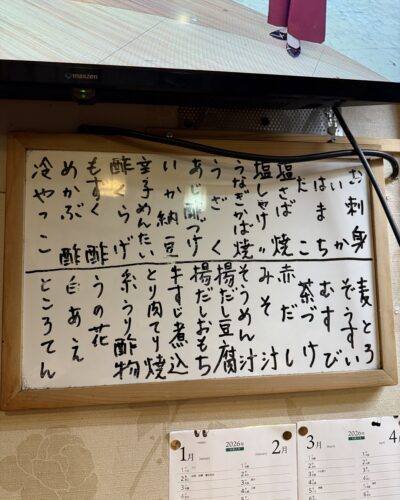 maxzen
お刺身
いか
はまち
たこ
塩さば焼
塩しゃけ〃
うなぎかば焼
うざく
あじ酢つけ
いか納豆
辛子めんたい
酢くらげ
もずく酢
めかぶ酢
冷やっこ
麦とろ
ぞうすい
むすび
茶づけ
赤だし
みそ汁
そうめん汁
揚だし豆腐
揚だしおもち
牛すじ煮込
とり肉てり焼
糸うり酢物
うの花
白あえ
ところてん
1月 January 2026年 2月
3月 March 2026年 4月